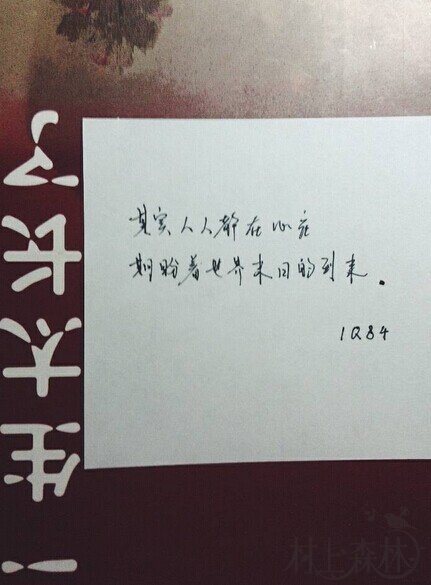 其实人人都在心底
期盼着世界末日的到来.
1Q84
一生太长了
村上森林